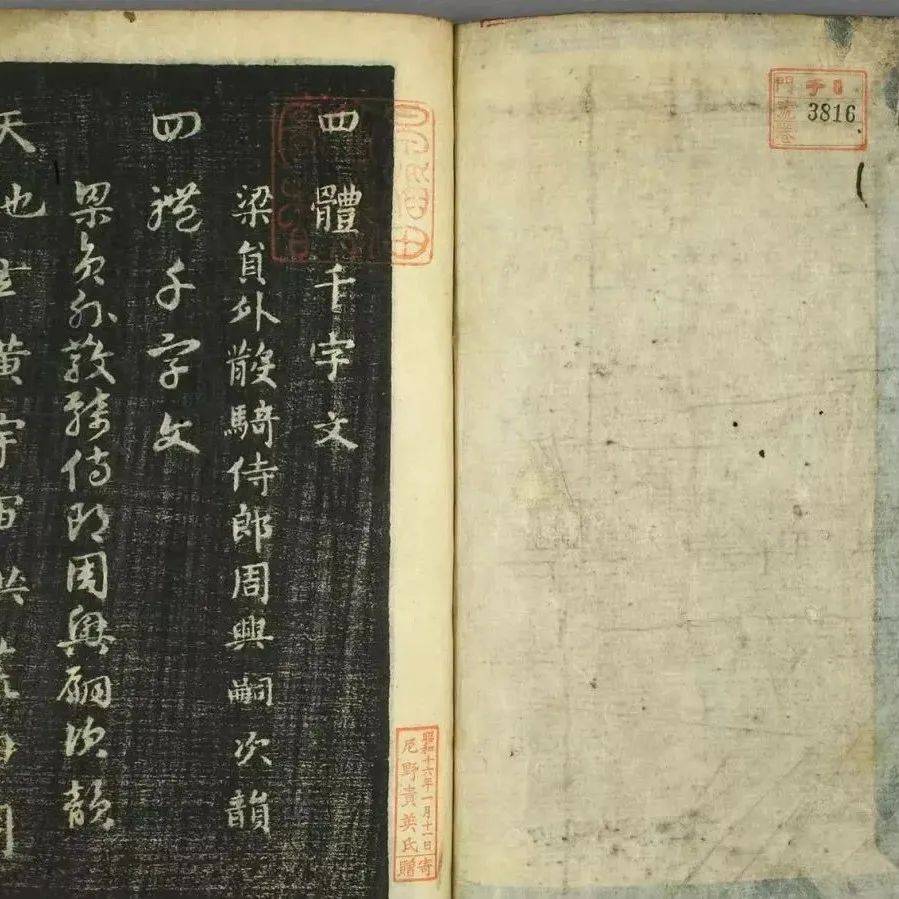 3816
四體千字文
梁員外散騎侍郎周興嗣次韻
四體千字文
梁員外散騎侍郎周興嗣次韻
天地玄黃宇宙
昭和十六年一月十一日
尾野貴英氏
寄贈